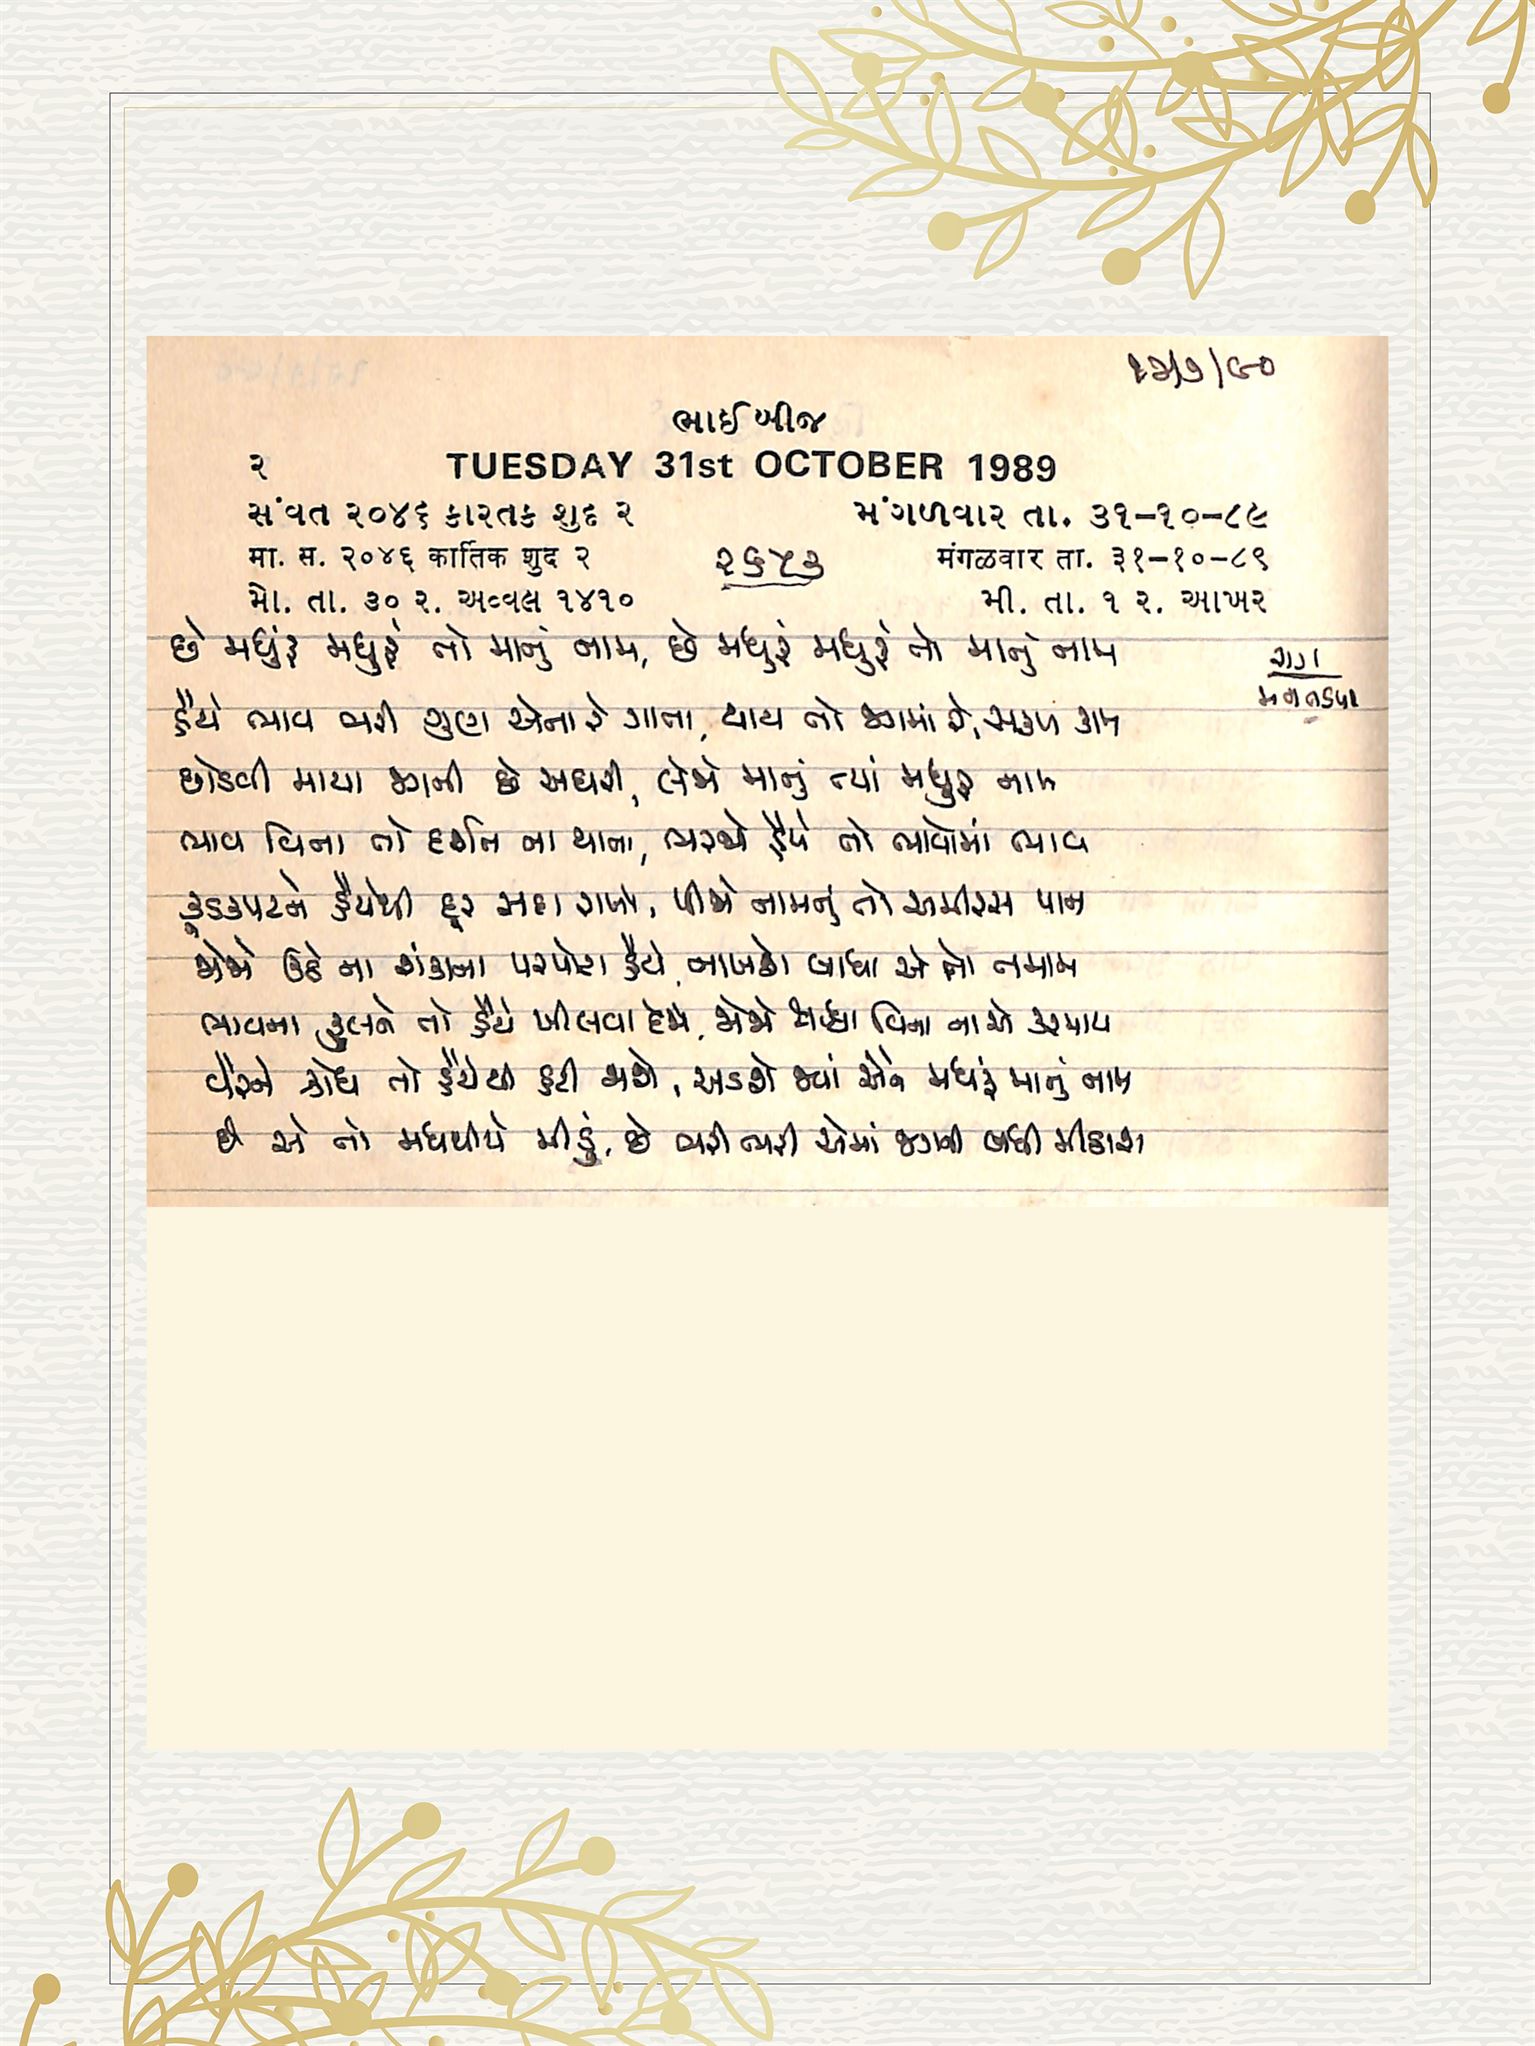 ૧૨/૭/૯૦
ભાઈ બીજ
૨ TUESDAY 31st OCTOBER 1989
સંવત ૨૦૪૬ કારતક શુદ ૨ મંગળવાર તા. ૩૧-૧૦-૮૯
मा. स. २०४६ कार्तिक शुद २ ૨૬૫૩ मंगळवार ता. ३१-१०-८९
મો. તા. ૩૦ ર. અવ્વલ ૧૪૧૦ મી. તા. ૧ ર. આખર
છે મધુરું મધુરું તો માનું નામ, છે મધુરું મધુરું તો માનું નામ
હૈયે ભાવ ભરી ગુણ એના રે ગાતા, થાય તો જગમાં રે, સફળ કામ
છોડવી માયા જગની છે અઘરી, લેજે માનું ત્યાં મધુરુ નામ
ભાવ વિના તો દર્શન ના થાતા, ભરજો હૈયે તો ભાવોમાં ભાવ
કૂડકપટને હૈયેથી દૂર સદા રાખો, પીજે નામનું તો અમીરસ પાન
જોજે ઉઠે ના શંકાના પરપોટા હૈયે, નાખશે બાધા એ તો તમામ
ભાવના ફુલને તો હૈયે ખીલવા દેજે, જોજે શ્રધ્ધા વિના ના એ કરમાય
વૈરને ક્રોધ તો હૈયેથી હટી જાશે, અડશે જ્યાં એને મધુરું માનું નામ
છે એ તો મધથીયે મીઠું, છે ભરી ભરી એમાં જગની બધી મીઠાશ